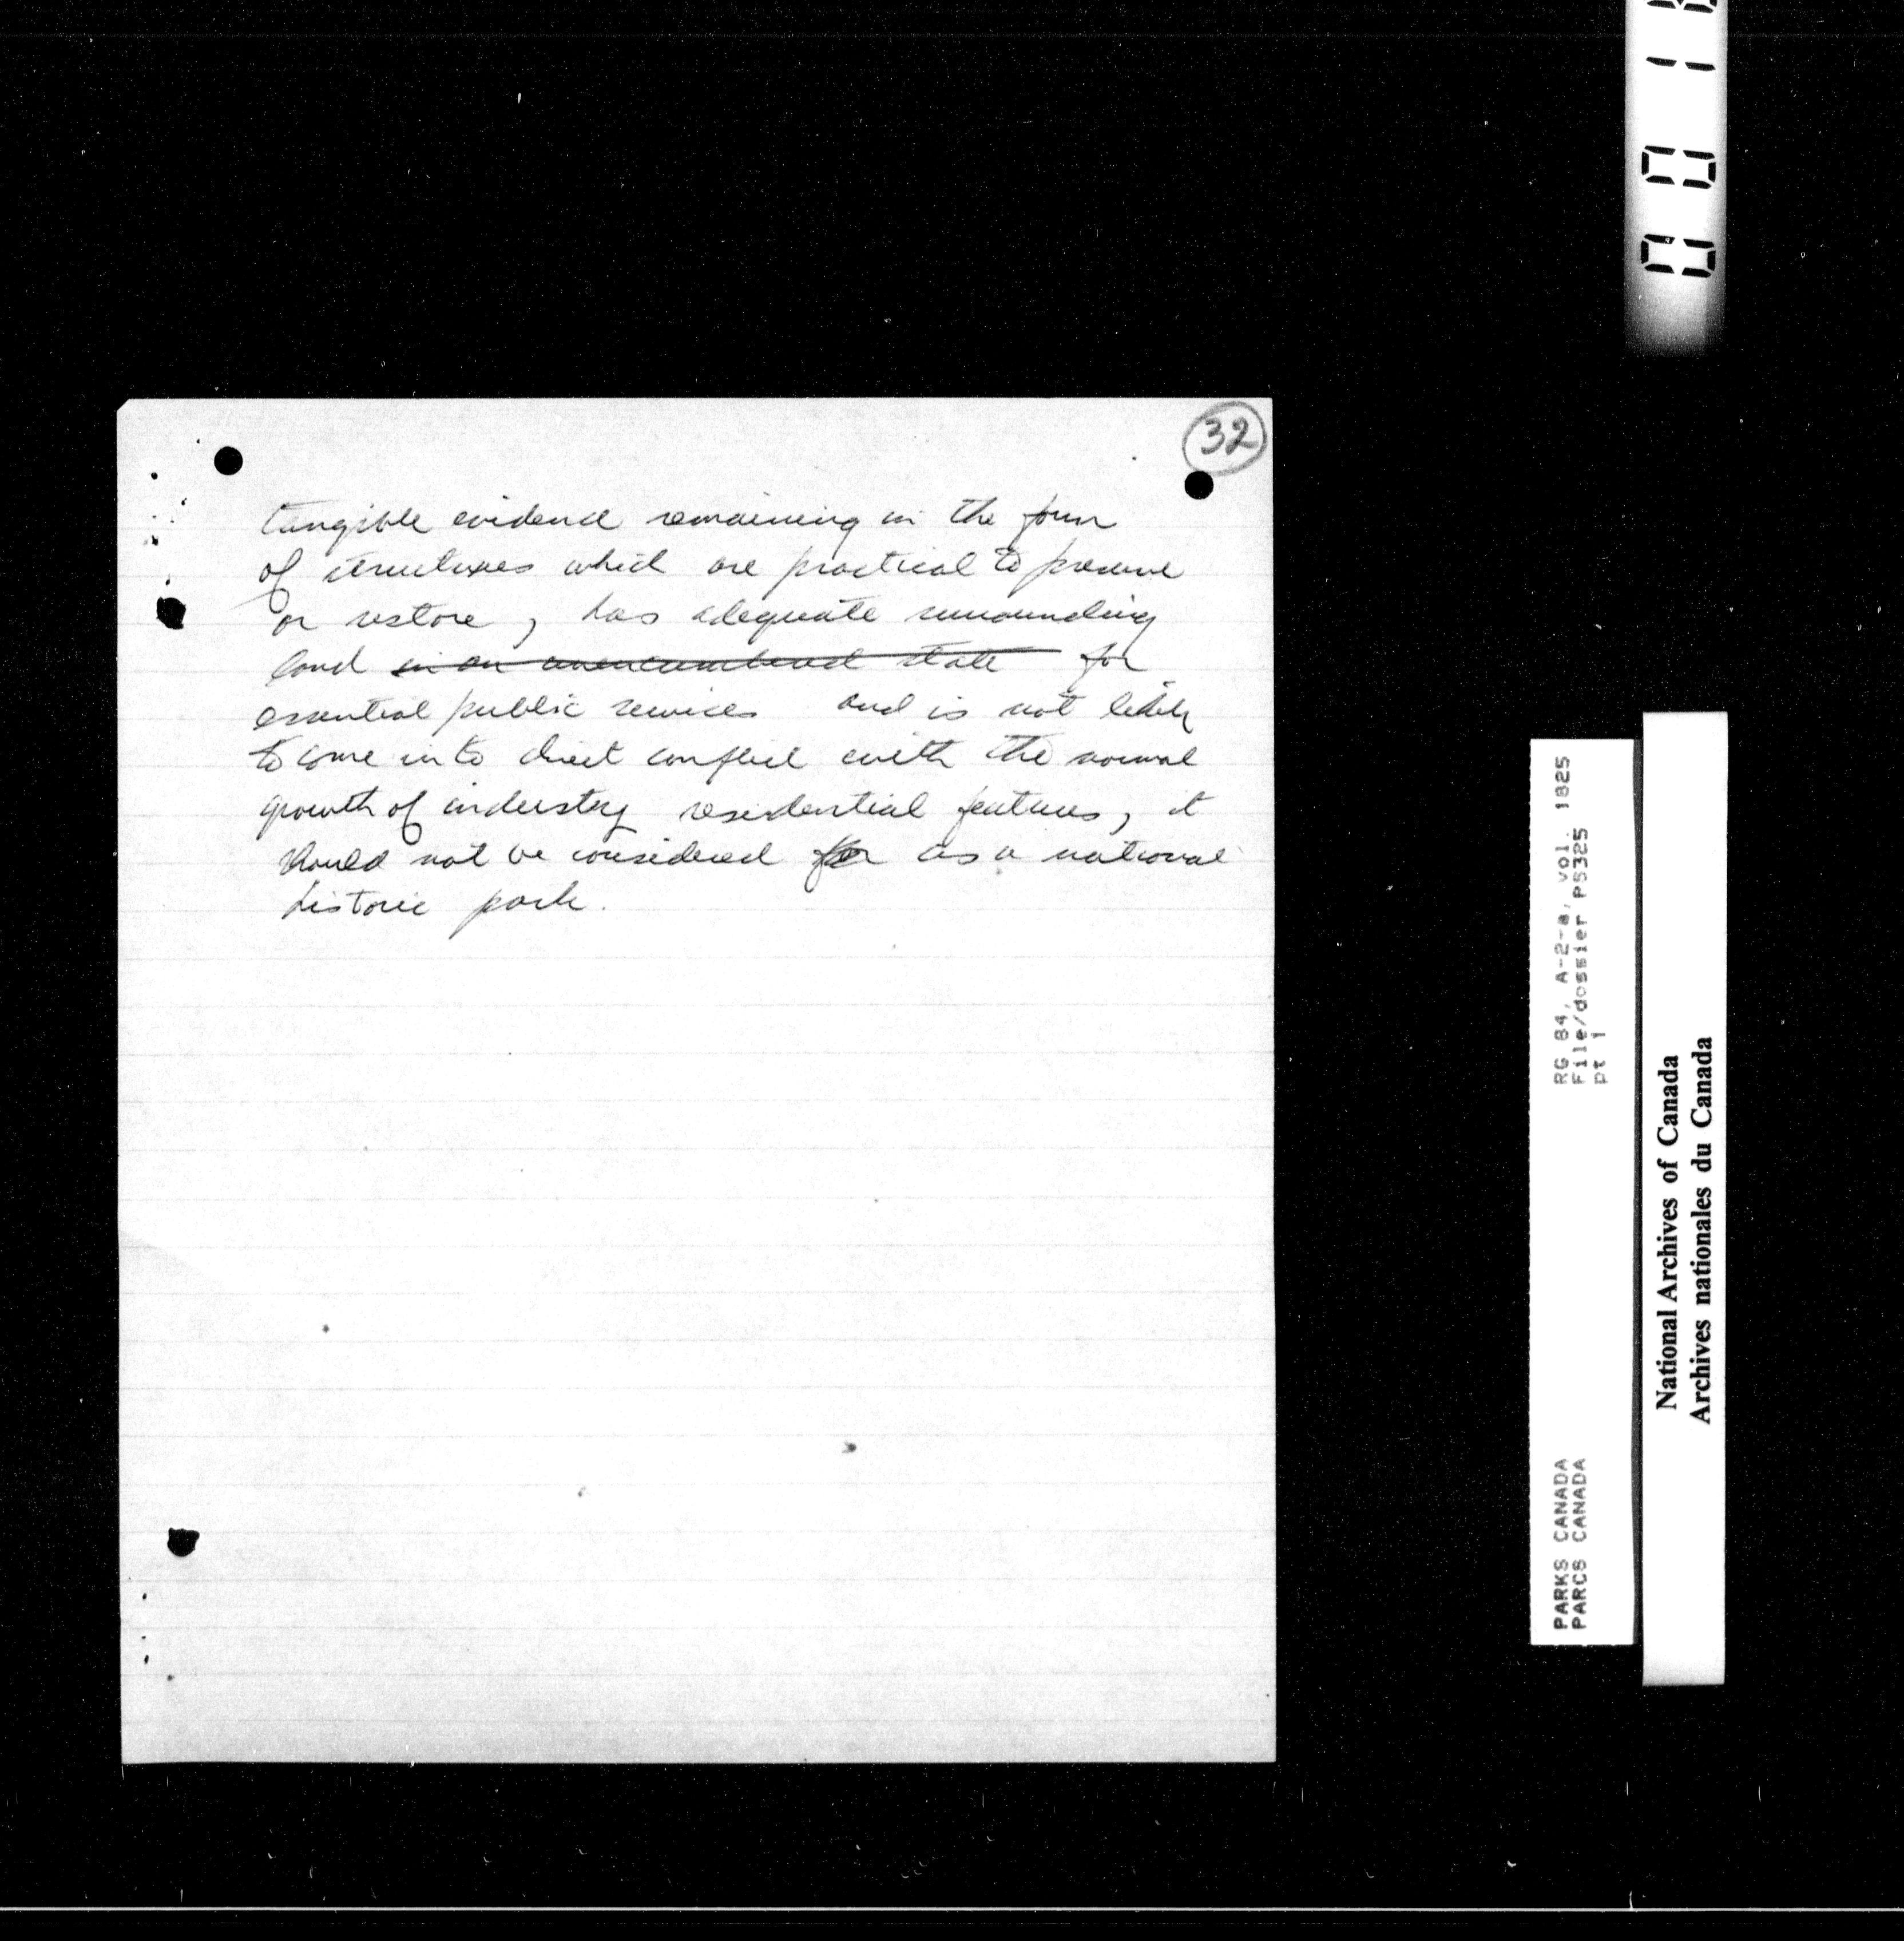 32
tangible evidence remaining in the form
of structures which are practical to preserve
or restore, has adequate surrounding
land in an unencumbered state for
essential public services and is not likely
to come into direct conflict with the normal
growth of industry residential features, it
should not be considered for as a national
historic park.
RG 84, A-2-a, vol. 1825
File/dossier PS325
pt 1
PARKS CANADA
PARCS CANADA
National Archives of Canada
Archives nationales du Canada